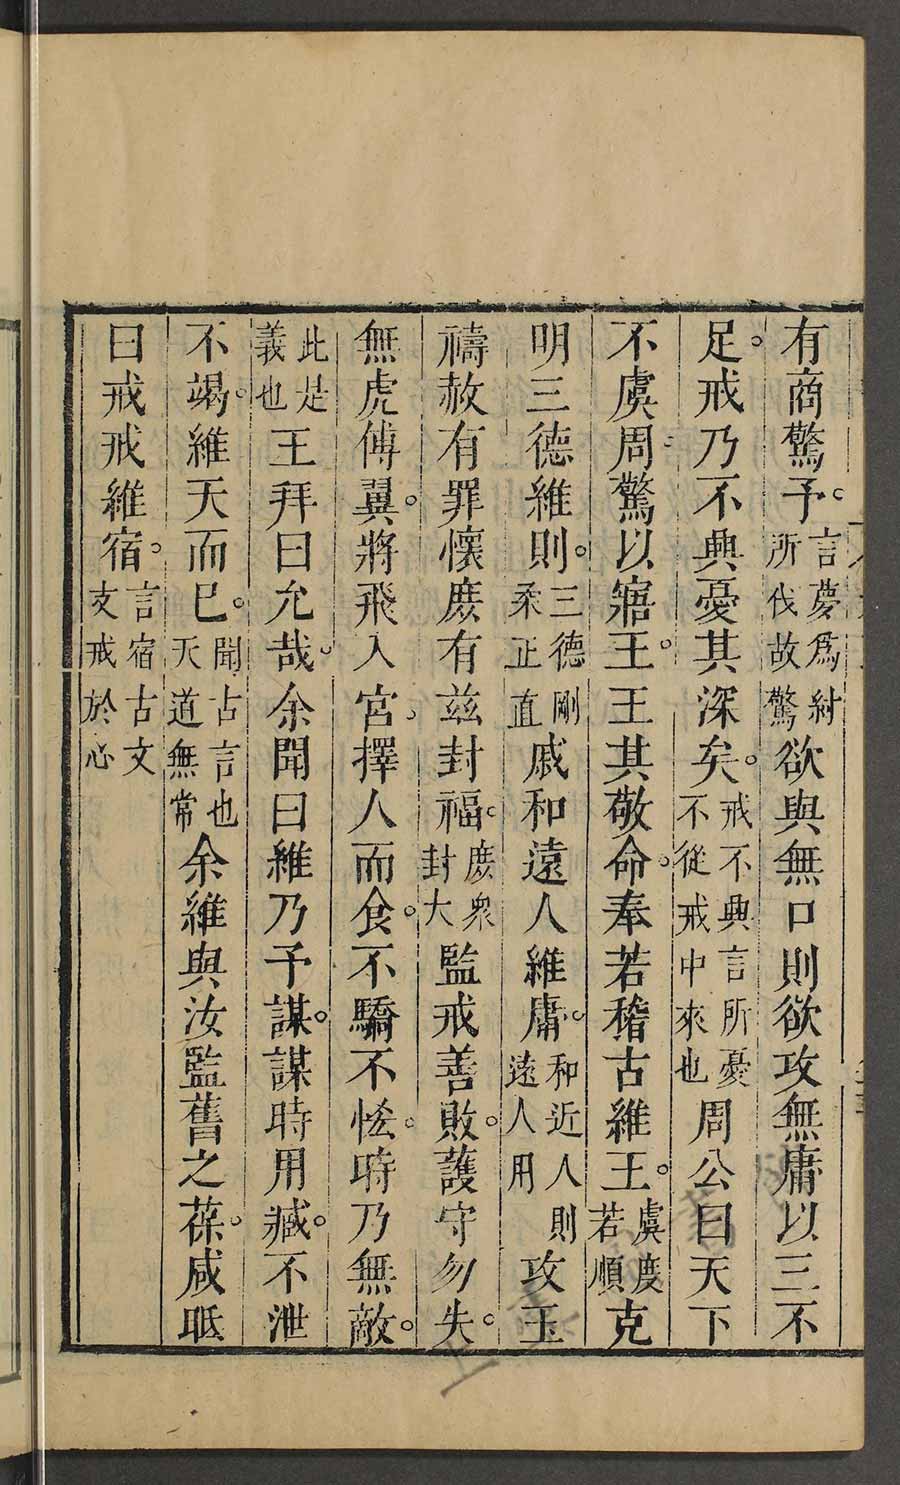 有商驚予。言夢爲紂所伐故驚欲與無口則欲攻無庸以三不
足。戒乃不興憂其深矣。戒不興言所憂不從戒中來也周公曰天下
不虞周驚以寤王。王其敬命。奉若稽古維王。虞度若順克
明三德維則。三德剛柔正直戚和遠人維庸。和近人則遠人用攻王
禱赦有罪懷庶有兹封福。庶衆封大監戒善敗。護守勿失。
無虎傅翼。將飛入宮。擇人而食。不驕不恡。時乃無敵。
此是義也王拜曰允哉。余聞曰維乃予謀。謀時用臧。不泄
不竭。維天而巳。聞古言也天道無常余維與汝監舊之葆。咸祗
曰戒戒維宿。言宿古文攴戒於心